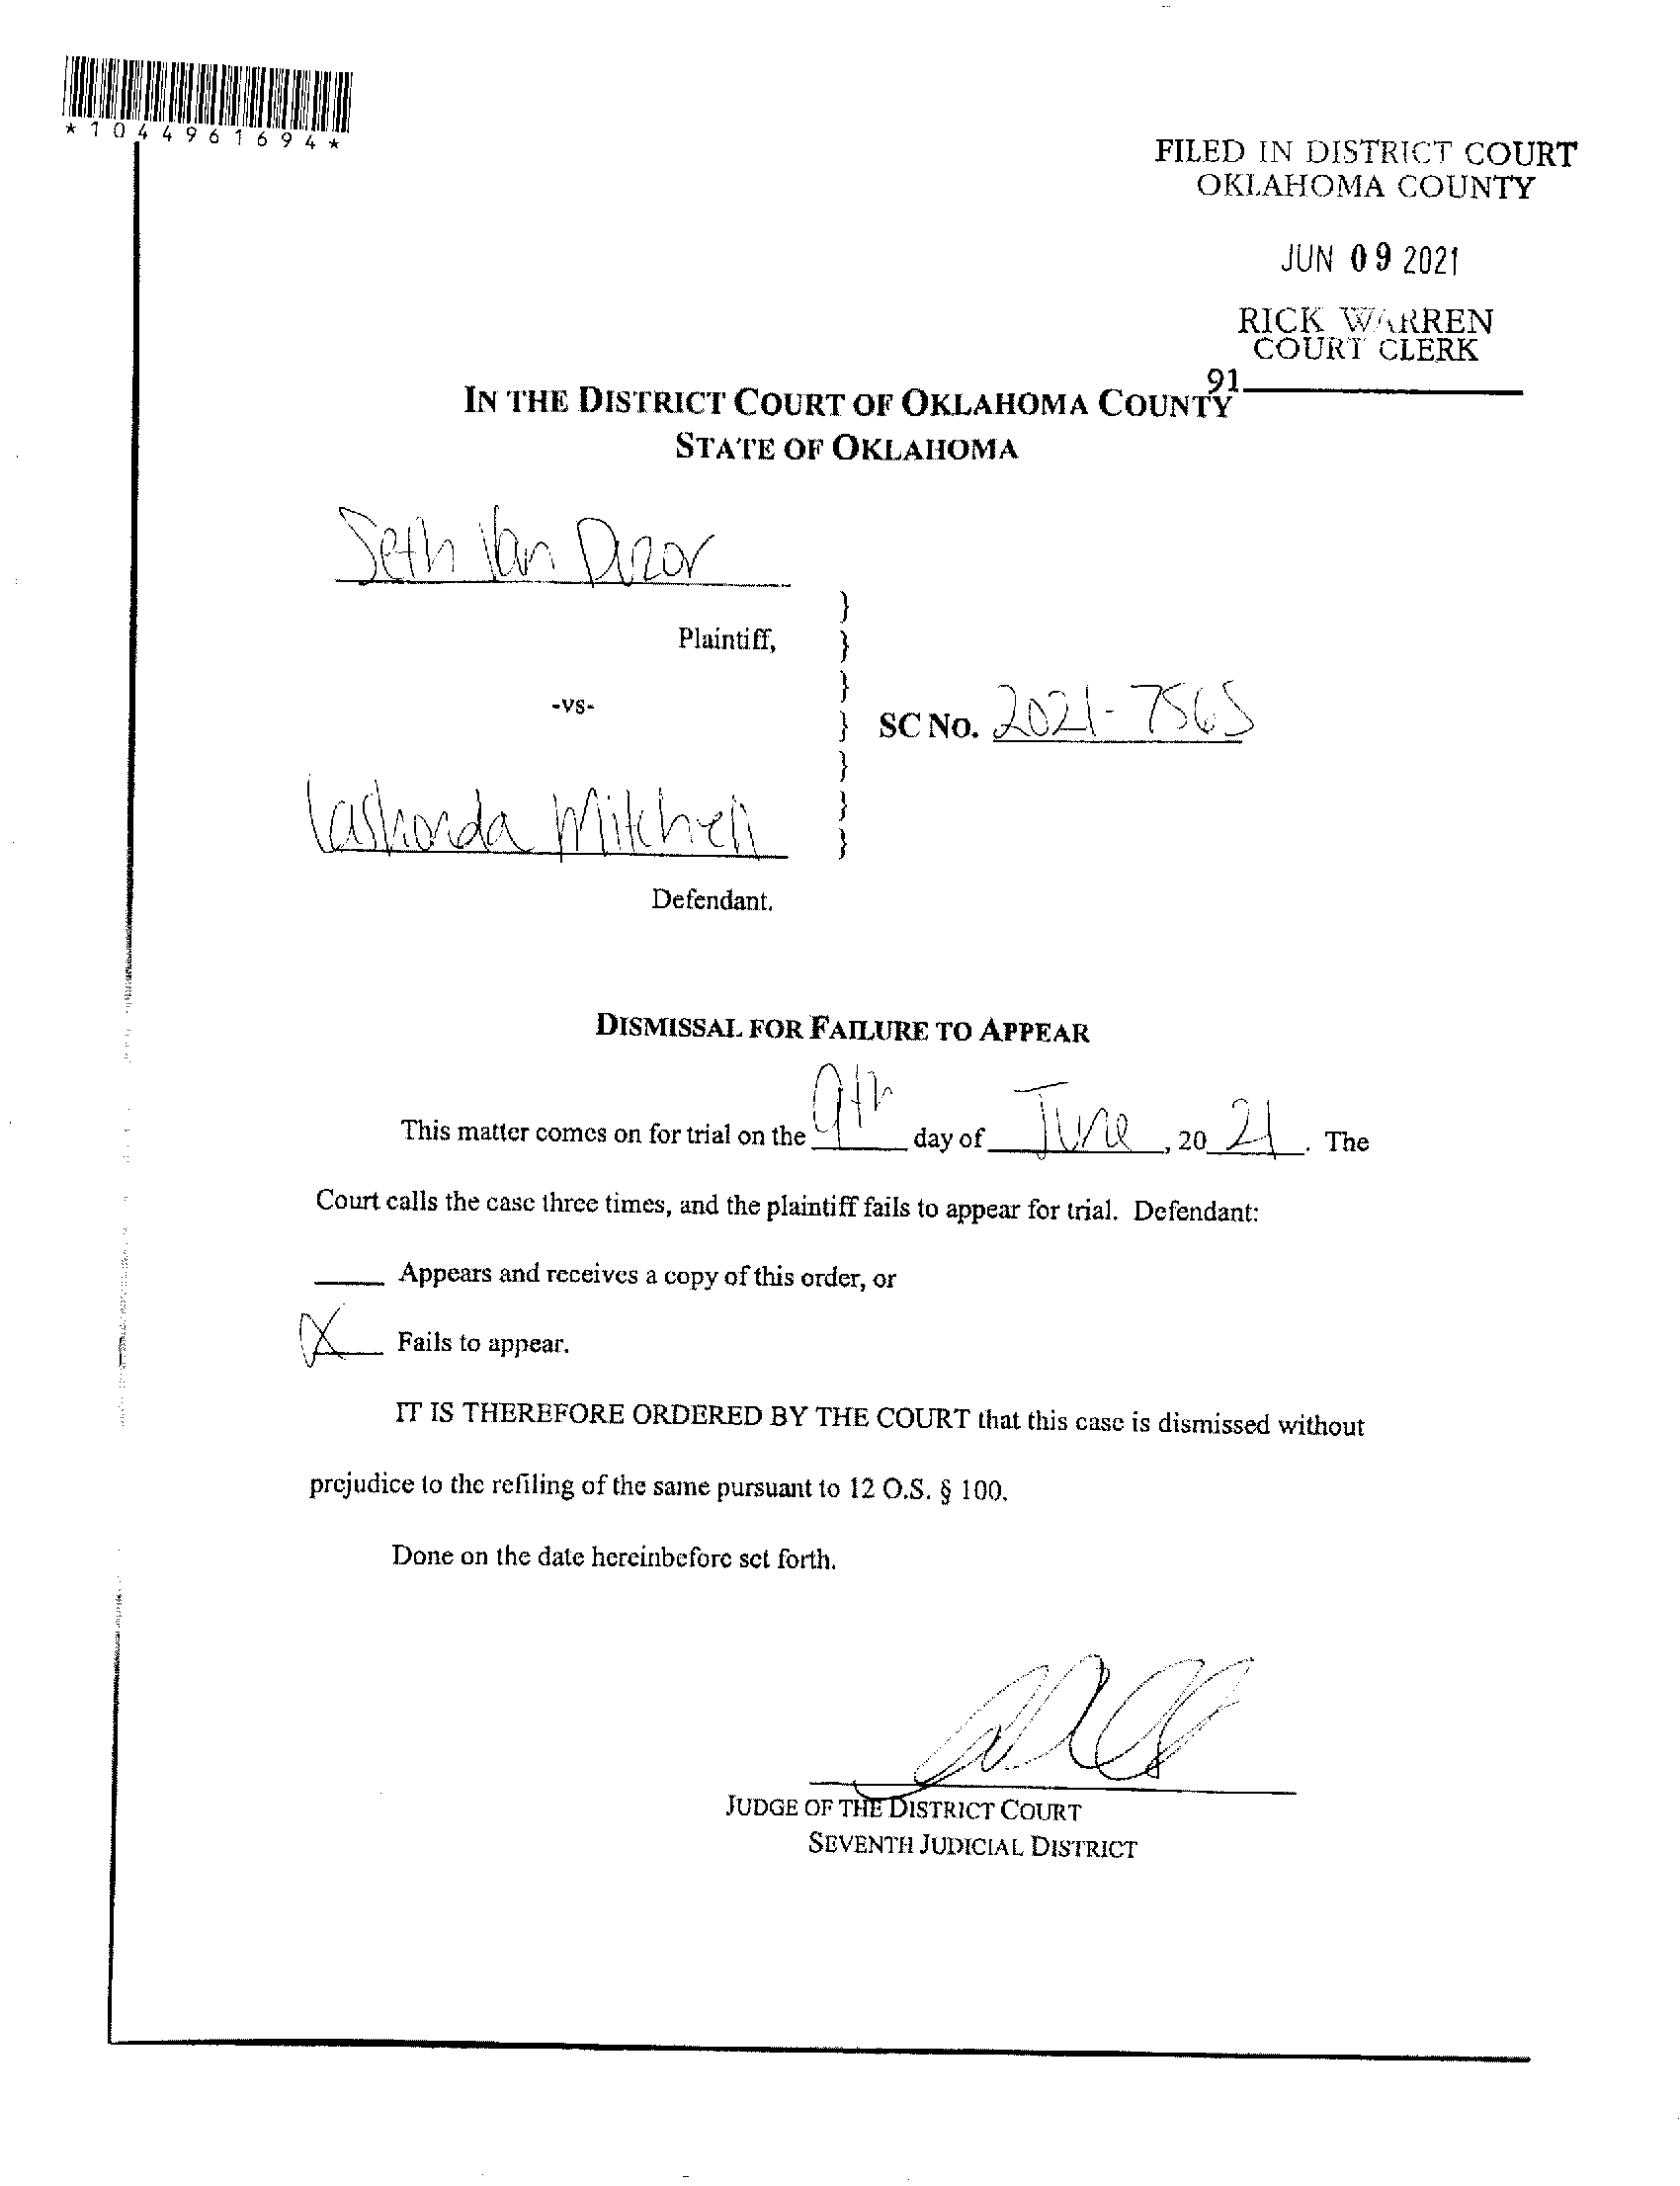 *1044961694*
FILED IN DISTRICT COURT
OKLAHOMA COUNTY
JUN 09 2021
RICK WARREN
COURT CLERK
91
IN THE DISTRICT COURT OF OKLAHOMA COUNTY
STATE OF OKLAHOMA
Seth Van
Plaintiff,
-vs-
SC No. 2021-7565
Lashonda Mitchell
Defendant.
DISMISSAL FOR FAILURE TO APPEAR
This matter comes on for trial on the 9th day of June, 20 21. The
Court calls the case three times, and the plaintiff fails to appear for trial. Defendant:
____ Appears and receives a copy of this order, or
X Fails to appear.
IT IS THEREFORE ORDERED BY THE COURT that this case is dismissed without
prejudice to the refiling of the same pursuant to 12 O.S. § 100.
Done on the date hereinbefore set forth.
JUDGE OF THE DISTRICT COURT
SEVENTH JUDICIAL DISTRICT